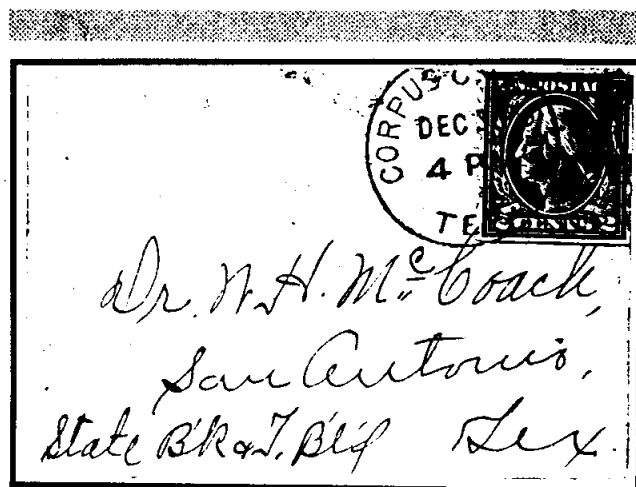 CORPUS C
DEC
4 P
TE
POSTAG
2 CENTS 2
Dr. W. H. McCoach,
San Antonio,
State B'k & T. Bl'd Tex.